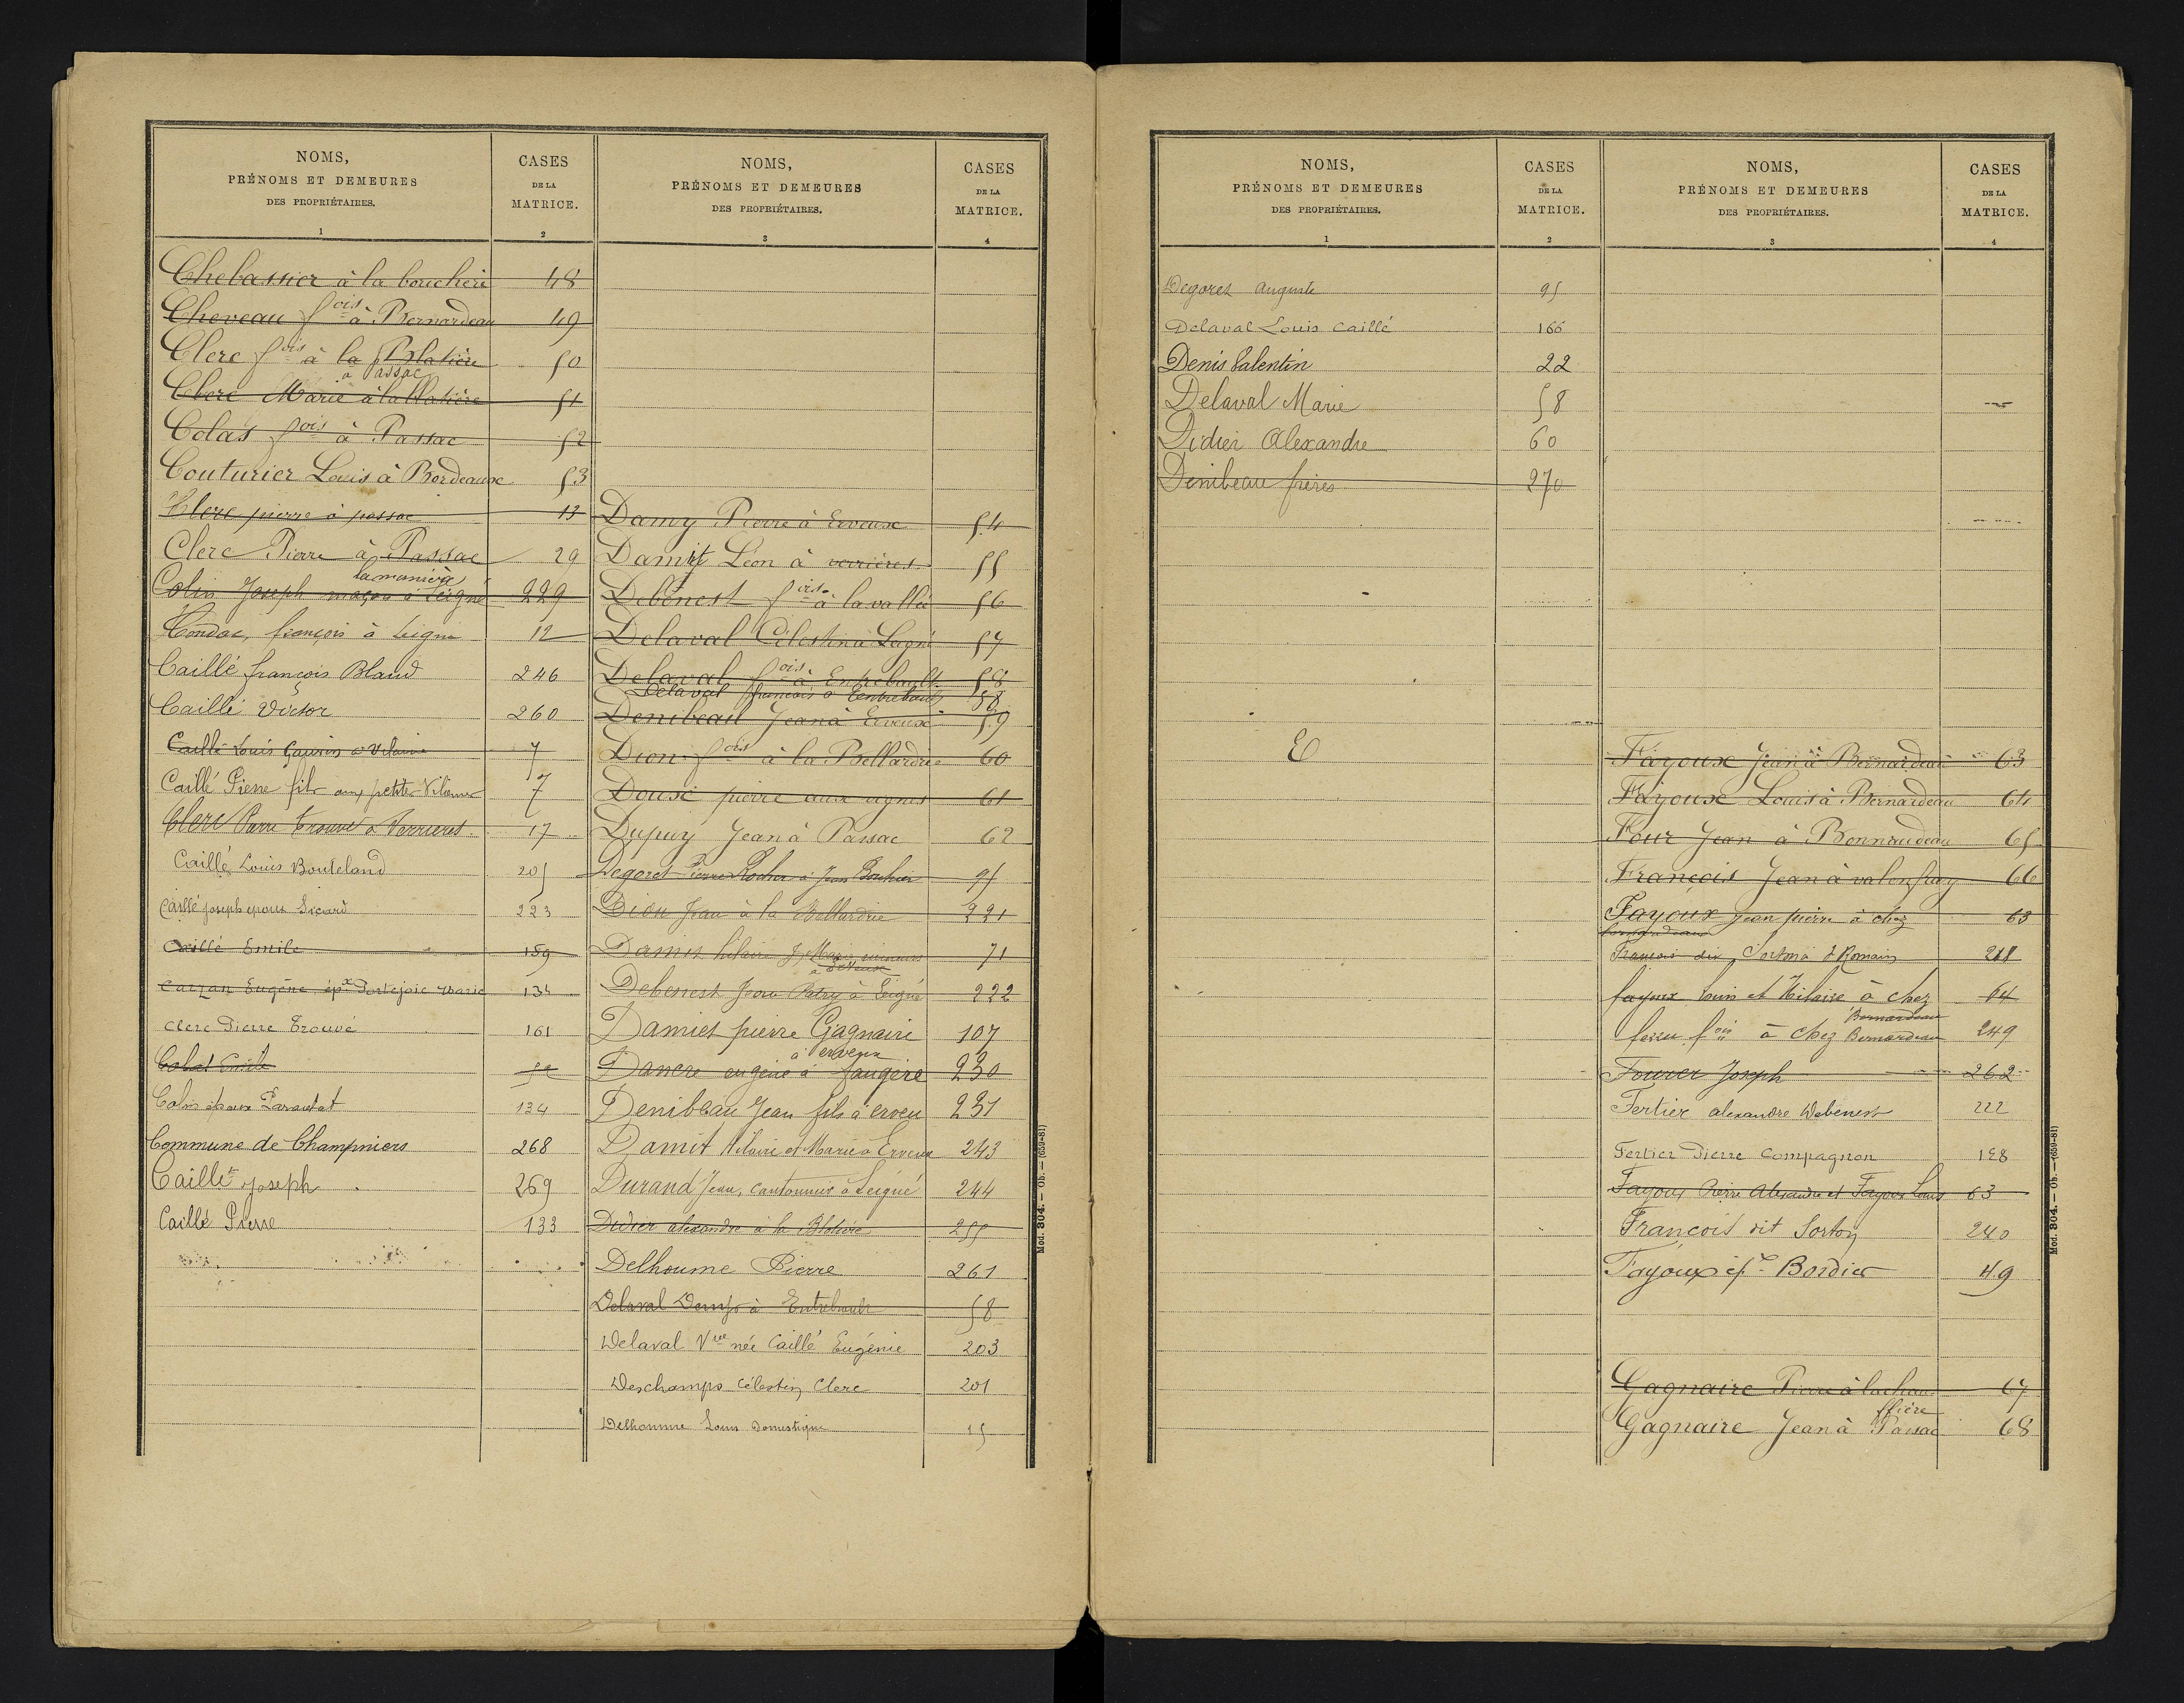 NOMS,
PRÉNOMS ET DEMEURES
DES PROPRIÉTAIRES.
1
CASES
DE LA
MATRICE.
2
Chebassier à la boucherie 48
Cheveau fois à Bernardeau 49
Clerc fois à la Blatière 50
à Passac
Clerc Marie à la Blatière 51
Colas fois à Passac 52
Couturier Louis à Bordeaux 53
Clerc pierre à passac 13
Clerc Pierre à Passac 29
la manière
Colin Joseph maçon à Leigné 229
Condac, françois à Leigné 12
Caillé françois Blaud 246
Caillé Victor 260
Caillé Louis Gaurin à Vilaine 7
Caillé Pierre fils aux petites Vilaines 7
Clerc Pierre Trouvé à Verrieres 17
Caillé Louis Bouteland 205
Caillé joseph epoux Sicard 223
Caillé Emile 159
Carzan Eugène épx Portejoie Marie 134
Clerc Pierre Trouvé 161
Colas 52
Colin époux Parautat 134
Commune de Champniers 268
Caillet Joseph 269
Caillé Pierre 133
NOMS,
PRÉNOMS ET DEMEURES
DES PROPRIÉTAIRES.
3
CASES
DE LA
MATRICE.
4
Damy Pierre à Erveux 54
Damit Léon à verrières 55
Debenest fois à la vallée 56
Delaval Célestin à Leigné 57
Delaval fois à Entrebault 58
Delaval françois à Lentrebaut 58
Denibeau Jean à Erveux 59
Dion fois à la Bellardrie 60
Doux pierre aux vignes 61
Dupuy Jean à Passac 62
Degorct Pierre Rocher à Jean Bouhier 95
Dion Jean à la Bellardrie 221
Damit hilaire & Marie mineurs 71
à Erveux
Debenest Jean Patry à Leigné 222
Damiet pierre Gagnaire 107
à erveux
Dancre eugène à faugere 230
Denibeau Jean fils à erveu 231
Damit Hilaire et Marie à Erveux 243
Durand Jean, cantonnier à Leigné 244
Didier alexandre à la Blatière 255
Delhoume Pierre 261
Delaval à Entrebault 58
Delaval Vve née Caillé Eugénie 203
Deschamps Célestin Clerc 201
Delhoumme Louis Domestique 15
Mod. 304. — Ob. — (659-81)
NOMS,
PRÉNOMS ET DEMEURES
DES PROPRIÉTAIRES.
1
CASES
DE LA
MATRICE.
2
Degoret Auguste 95
Delaval Louis Caillé 166
Denis Valentin 22
Delaval Marie 58
Didier Alexandre 60
Denibeau frères 270
E
NOMS,
PRÉNOMS ET DEMEURES
DES PROPRIÉTAIRES.
3
CASES
DE LA
MATRICE.
4
Fayoux Jean à Bernardeau 63
Fayoux Louis à Bernardeau 64
Four Jean à Bonnaudeau 65
François Jean à valenfray 66
Fayoux jean pierre à chez 63
bernardeau
François dix Sorton & Romain 218
fayoux Louis et Hilaire à chez 64
Bernardeau
fereu fois à chez Bernardeau 249
Fourer Joseph 262
Fertier alexandre Debenest 222
Fertier Pierre Compagnon 128
Fayoux Pierre Alexandre et Fayoux Louis 63
François dit Sorton 240
Fayoux épx Bordier 49
Gagnaire Pierre à la chau- 67
ffière
Gagnaire Jean à Passac 68
Mod. 304. — Ob. — (659-81)